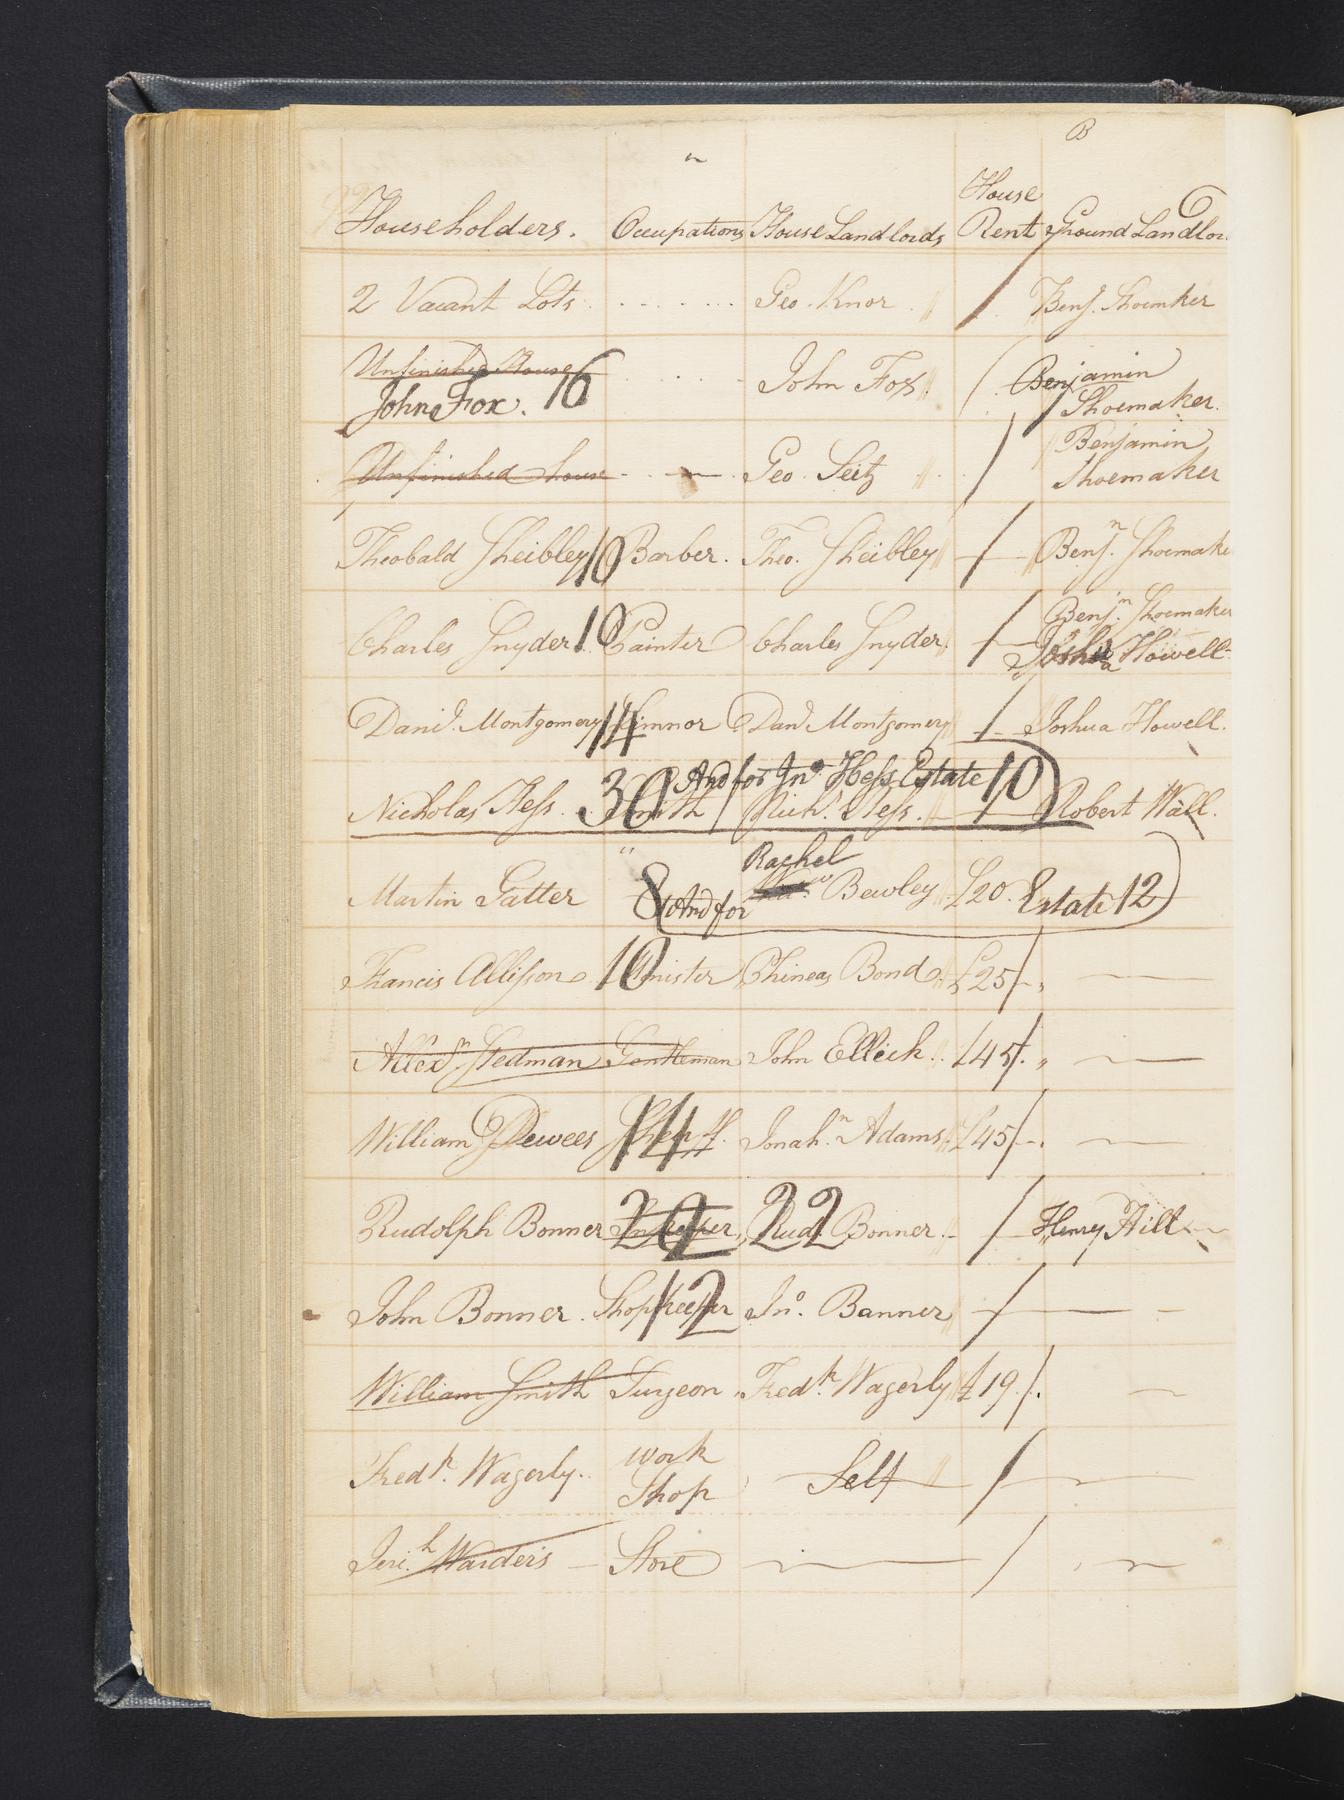 B
Householders. Occupations House Landlords House Rent Ground Landlor
2 Vacant Lots Geo. Knor Benj. Shoemker
Unfinished House John Fox. 16 John Fox Benjamin Shoemaker.
Unfinished house Geo. Seitz Benjamin Shoemaker
Theobald Sheibley 10 Barber. Theo. Sheibley Benj.n Shoemake
Charles Snyder 10 Painter Charles Snyder Benj.n Shoemaker
Joshua Howell
Danl. Montgomery 14 Limnor Danl Montgomery Joshua Howell.
And for Jno. Hess Estate 10
Nicholas Hess. 30 Smith Nich.s Hess. Robert Wall.
Rachel
Martin Gatter 8 Bewley £20. Estate 12
And for
Francis Allison 10 Minister Phineas Bond £25
Allexdr. Stedman Gentleman John Ellick £45
William Dewees 14 Sheriff. Jonah.n Adams £45
Rudolph Bonner 22 Inkeeper, 22 Rud. Bonner Henry Hill
John Bonner. Shopkeeper 12 Jno. Banner
William Smith Surgeon Fredk. Wagerly £19
Fredk. Wagerly. work Shop Self
Jeri.h Warders Store